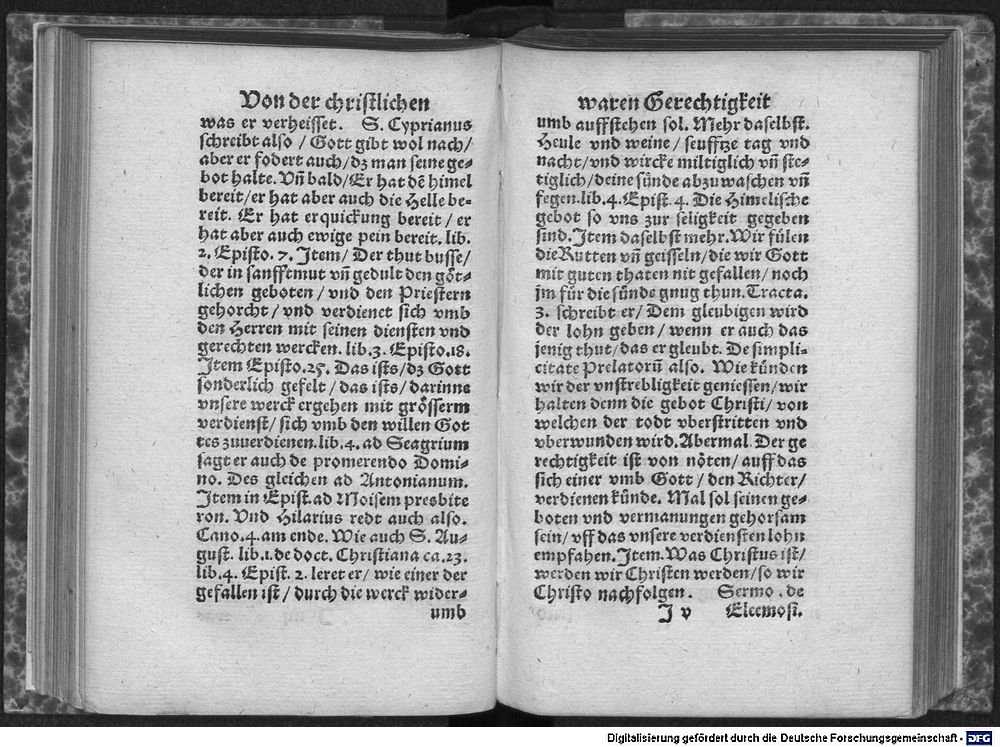 Von der christlichen
was er verheisset. S. Cyprianus
schreibt also / Gott gibt wol nach/
aber er fodert auch/dz man seine ge-
bot halte. Vñ bald/Er hat dē himel
bereit/er hat aber auch die Helle be-
reit. Er hat erquickung bereit / er
hat aber auch ewige pein bereit. lib.
2. Episto. 7. Item/ Der thut busse/
der in sanfftmut vñ gedult den göt-
lichen geboten / vnd den Priestern
gehorcht / vnd verdienet sich vmb
den Herren mit seinen diensten vnd
gerechten wercken. lib. 3. Episto. 18.
Item Episto. 25. Das ists/dz Gott
sonderlich gefelt / das ists/ darinne
vnsere werck ergehen mit grösserm
verdienst/ sich vmb den willen Got
tes zuuerdienen. lib. 4. ad Seagrium
sagt er auch de promerendo Domi-
no. Des gleichen ad Antonianum.
Item in Epist. ad Moisem presbite
ron. Vnd Hilarius redt auch also.
Cano. 4. am ende. Wie auch S. Au-
gust. lib. 1. de doct. Christiana ca. 23.
lib. 4. Epist. 2. leret er/ wie einer der
gefallen ist / durch die werck wider-
umb
waren Gerechtigkeit
umb auffstehen sol. Mehr daselbst.
Heule vnd weine / seufftze tag vnd
nacht/vnd wircke miltiglich vñ ste-
tiglich/deine sünde abzuwaschen vñ
fegen. lib. 4. Epist. 4. Die Himelische
gebot so vns zur seligkeit gegeben
sind. Item daselbst mehr. Wir fülen
die Rutten vñ geisseln/die wir Gott
mit guten thaten nit gefallen/ noch
jm für die sünde gnug thun. Tracta.
3. schreibt er/ Dem gleubigen wird
der lohn geben / wenn er auch das
jenig thut/das er gleubt. De simpli-
citate Prelatorū also. Wie künden
wir der vnstrebligkeit geniessen/wir
halten denn die gebot Christi/ von
welchen der todt vberstritten vnd
vberwunden wird. Abermal. Der ge
rechtigkeit ist von nöten/ auff das
sich einer vmb Gott / den Richter/
verdienen künde. Mal sol seinen ge-
boten vnd vermanungen gehorsam
sein / vff das vnsere verdiensten lohn
empfahen. Item. Was Christus ist/
werden wir Christen werden/so wir
Christo nachfolgen. Sermo. de
J v Eleemosi.
Digitalisierung gefördert durch die Deutsche Forschungsgemeinschaft - DFG